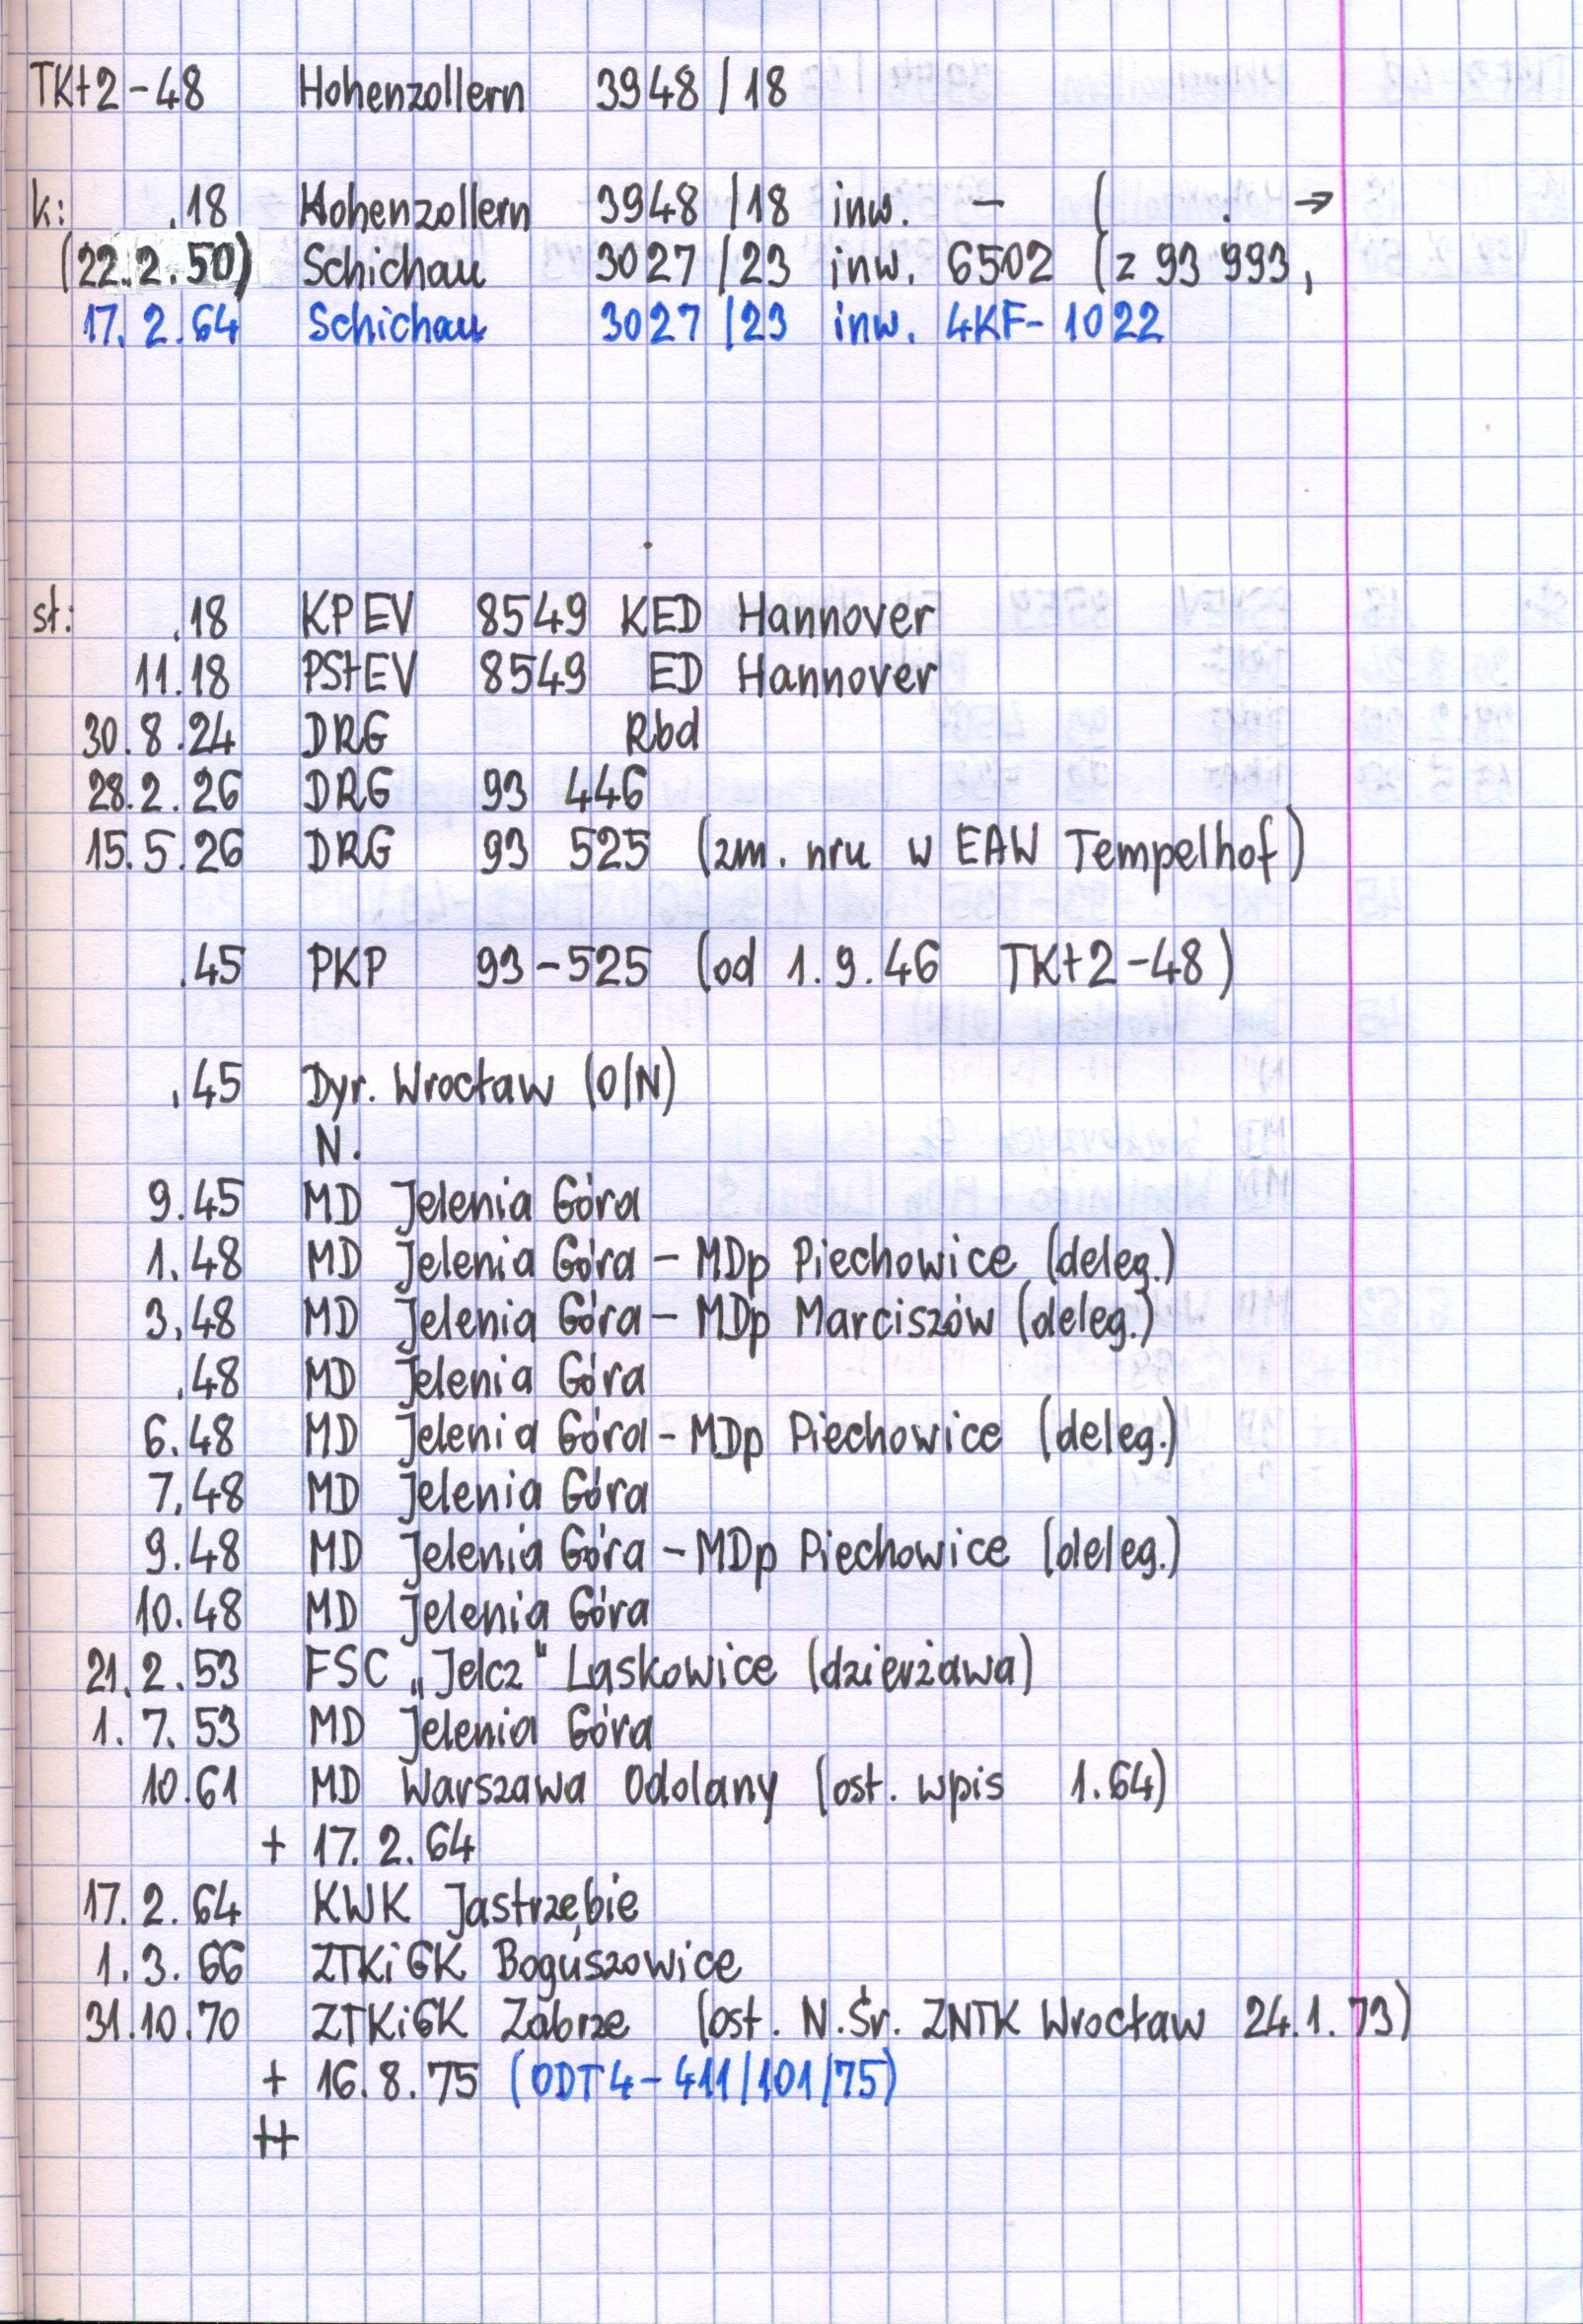 TKt2-48 Hohenzollern 3948/18
k: .18 Hohenzollern 3948/18 inw. - ( . →
(22.2.50) Schichau 3027/23 inw. 6502 (z 93 993,
17.2.64 Schichau 3027/23 inw. 4KF-1022
st: .18 KPEV 8549 KED Hannover
11.18 PStEV 8549 ED Hannover
30.8.24 DRG Rbd
28.2.26 DRG 93 446
15.5.26 DRG 93 525 (zm. nru w EAW Tempelhof)
.45 PKP 93-525 (od 1.9.46 TKt2-48)
.45 Dyr. Wrocław (O/N)
N.
9.45 MD Jelenia Góra
1.48 MD Jelenia Góra - MDp Piechowice (deleg.)
3.48 MD Jelenia Góra - MDp Marciszów (deleg.)
.48 MD Jelenia Góra
6.48 MD Jelenia Góra - MDp Piechowice (deleg.)
7.48 MD Jelenia Góra
9.48 MD Jelenia Góra - MDp Piechowice (deleg.)
10.48 MD Jelenia Góra
21.2.53 FSC „Jelcz" Laskowice (dzierżawa)
1.7.53 MD Jelenia Góra
10.61 MD Warszawa Odolany (ost. wpis 1.64)
+ 17.2.64
17.2.64 KWK Jastrzębie
1.3.66 ZTKiGK Boguszowice
31.10.70 ZTKiGK Zabrze (ost. N.Śr. ZNTK Wrocław 24.1.73)
+ 16.8.75 (ODT4-411/101/75)
++